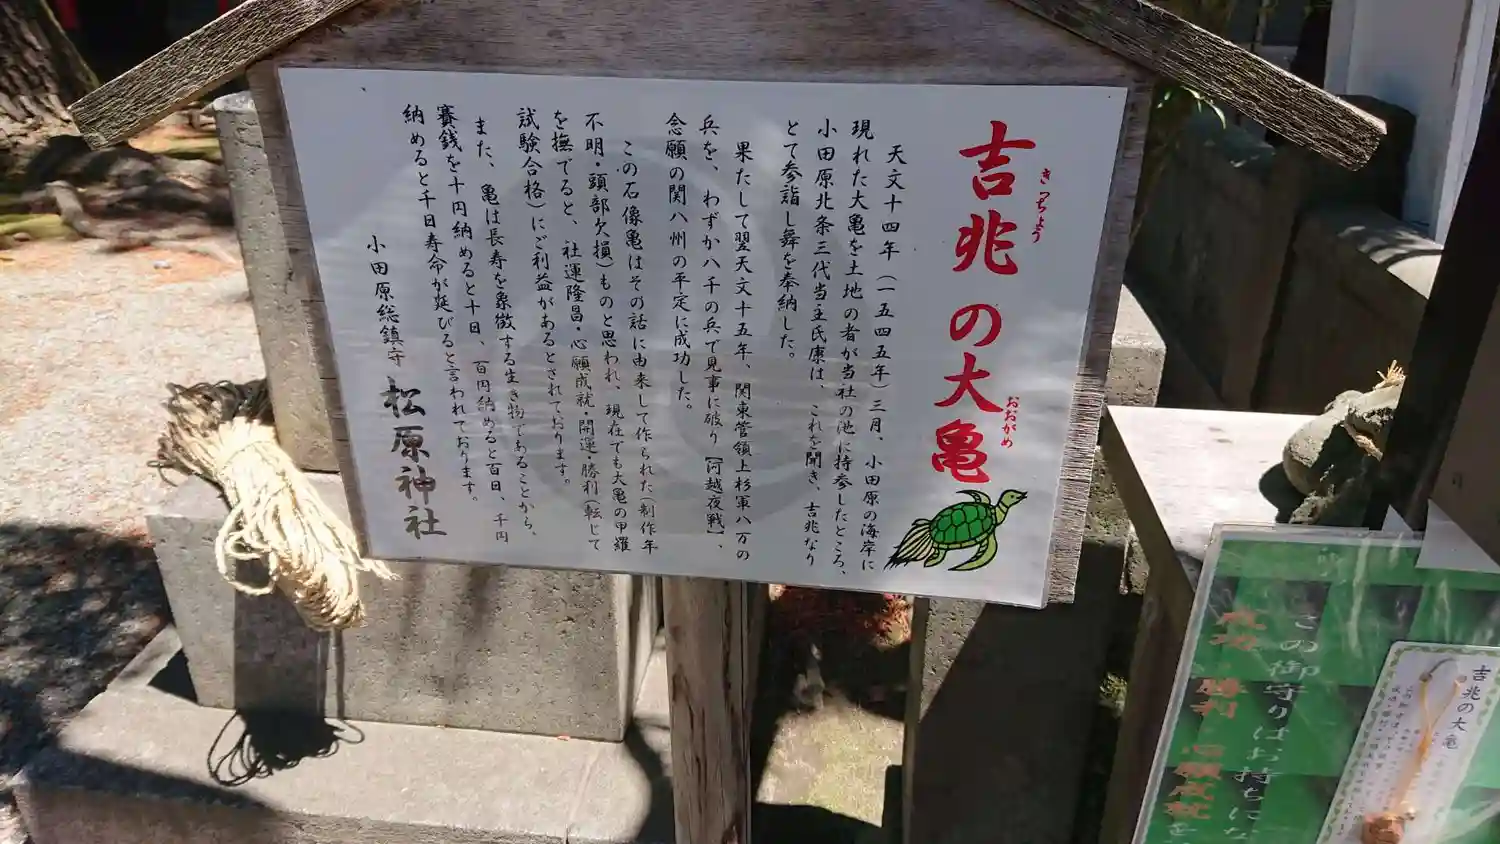 吉兆の大亀
きっちょう
おおがめ
天文十四年（一五四五年）三月、小田原の海岸に
現れた大亀を土地の者が当社の池に持参したところ、
小田原北条三代当主氏康は、これを聞き、吉兆なり
とて参詣し舞を奉納した。
果たして翌天文十五年、関東管領上杉軍八万の
兵を、わずか八千の兵で見事に破り【河越夜戦】、
念願の関八州の平定に成功した。
この石像亀はその話に由来して作られた（制作年
不明・頭部欠損）ものと思われ、現在でも大亀の甲羅
を撫でると、社運隆昌・心願成就・開運・勝利（転じて
試験合格）にご利益があるとされております。
また、亀は長寿を象徴する生き物であることから、
賽銭を十円納めると十日、百円納めると百日、千円
納めると千日寿命が延びると言われております。
小田原総鎮守 松原神社
この御守りはお持ちにな
成功 勝利 心願成就を
吉兆の大亀